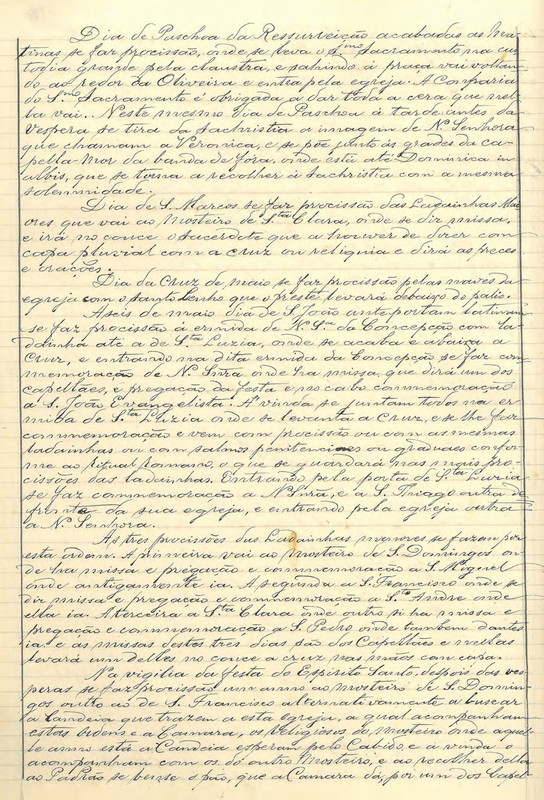 Dia de Paschoa da Ressurreição acabadas as Ma-
tinas se faz procissão, onde se leva o S.mo Sacramento na cus-
todia grande pela claustra, e sahindo á praça vai voltan-
do ao redor da Oliveira e entra pela egreja. A Confraria
do S.mo Sacramento é obrigada a dar toda a cera que nel-
la vai. Neste mesmo dia de Paschoa á tarde antes da
Vespera se tira da Sachristia a imagem de N. Senhora
que chamam a Veronica, e se põe junto ás grades da ca-
pella-Mor da banda de fora, onde está até Dominica in
albis, que se torna a recolher á Sachristia com a mesma
solemnidade.
Dia de S. Marcos se faz procissão das Ladainhas Mai-
ores que vai ao Mosteiro de S.ta Clara, onde se diz missa,
e irá no couce o Sacerdote que a houver de dizer com
capa pluvial com a cruz ou reliquia e dirá as preces
e orações.
Dia da Cruz de maio se faz procissão pelas naves da
egreja com o Santo Lenho que o preste levará debaixo do palio.
A seis de maio dia de S. João ante portam latinam
se faz procissão á ermida de N. Sr.a da Concepção com la-
dainha até a de S.ta Luzia, onde se acaba e abaixa a
Cruz, e entrando na dita ermida da Concepção se faz com-
memoração de N. Snrã onde ha missa, que dirá um dos
capellães, e pregação da festa e no cabo commemoração
a S. João Evangelista. Á vinda se juntam todos na er-
mida de S.ta Luzia onde se levanta a Cruz, e se lhe faz
commemoração e vem com procissão ou com as mesmas
ladainhas ou com salmos penitenciaes ou graduaes confor-
me ao ritual romano, o que se guardará nas mais pro-
cissões das ladainhas. Entrando pela porta de S.ta Luzia
se faz commemoração a N. Snrã, e a S. Thiago outra de-
fronte da sua egreja, e entrando pela egreja outra
a N. Senhora.
As tres procissões das Ladainhas menores se fazem por
esta ordem. A primeira vai ao Mosteiro de S. Domingos on-
de ha missa e pregação e commemoração a S. Miguel
onde antigamente ia. A segunda a S. Francisco onde se
diz missa e pregação e commemoração a S.to André onde
ella ia. A terceira a S.ta Clara onde outro si ha missa e
pregação e commemoração a S. Pedro onde tambem dantes
ia e as missas destes tres dias são dos Capellães e nellas
levará um delles no couce a cruz nas mãos com capa.
Na vigilia da festa do Espirito Santo, depois das ves-
peras se faz procissão um anno ao mosteiro de S. Domin-
gos outro ao de S. Francisco alternativamente a buscar
a Candeia que trazem a esta Egreja, a qual acompanham
estas ordens e a Camara, os religiosos do mosteiro onde aquel-
le anno está a Candeia esperam pelo Cabido, e á vinda o
acompanham com os do outro Mosteiro, e ao recolher della
ao Padrão se benze o pão, que a Camara dá, por um dos Capel-